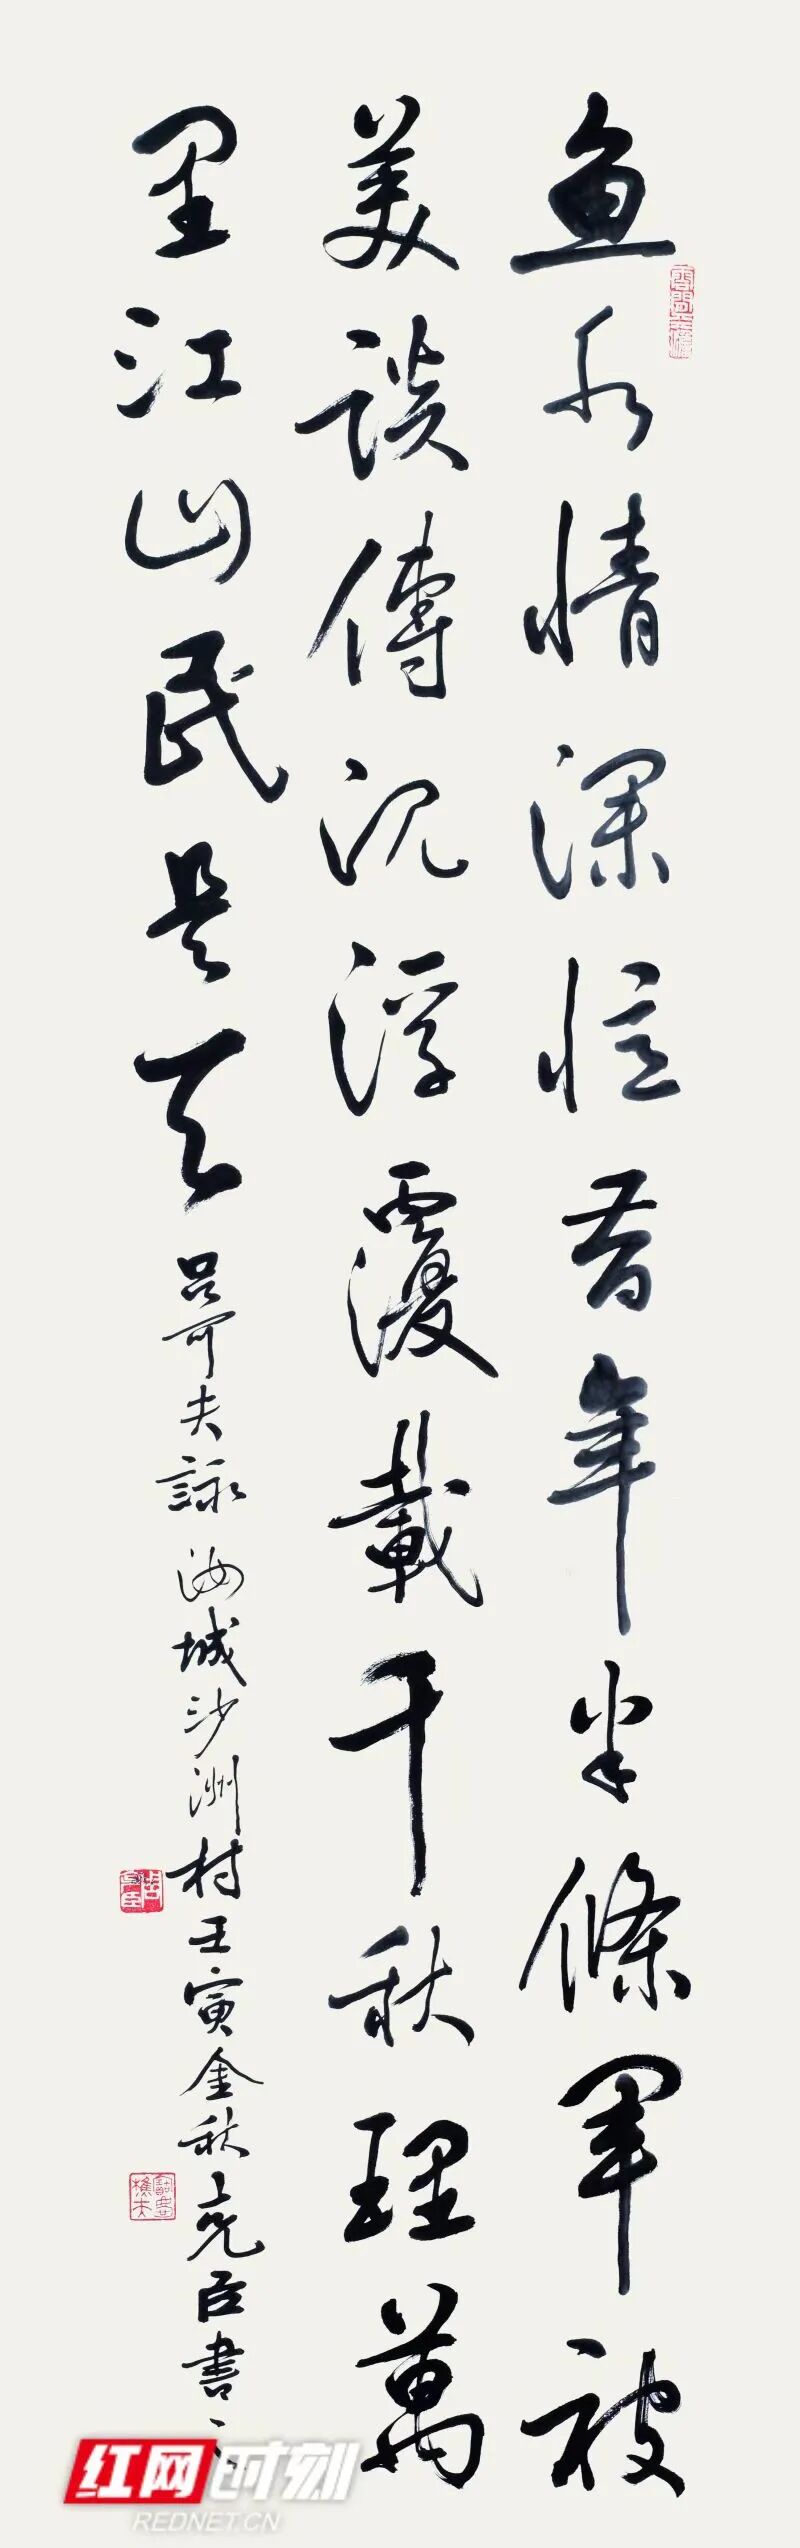 鱼水情深憶昔年半條軍被
美談傳沉浮覆載千秋理萬
里江山民是天 吕可夫詠汝城沙洲村壬寅金秋臣書之
红网时刻
REDNET.CN